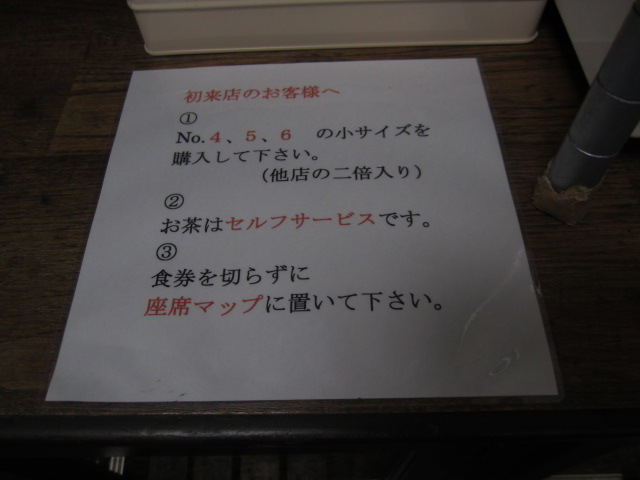 初来店のお客様へ
①
No.４、５、６　の小サイズを
購入して下さい。
（他店の二倍入り）
②
お茶はセルフサービスです。
③
食券を切らずに
座席マップに置いて下さい。